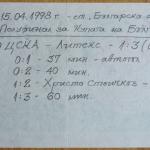 15.04.1998 г. - ст. "Българска а
Полуфинал за Купата на Бълг
ЦСКА - Литекс - 1:3 (
0:1 - 37 мин - автогол
0:2 - 40 мин.
1:2 - Христо Стоичков -
1:3 - 60 мин.